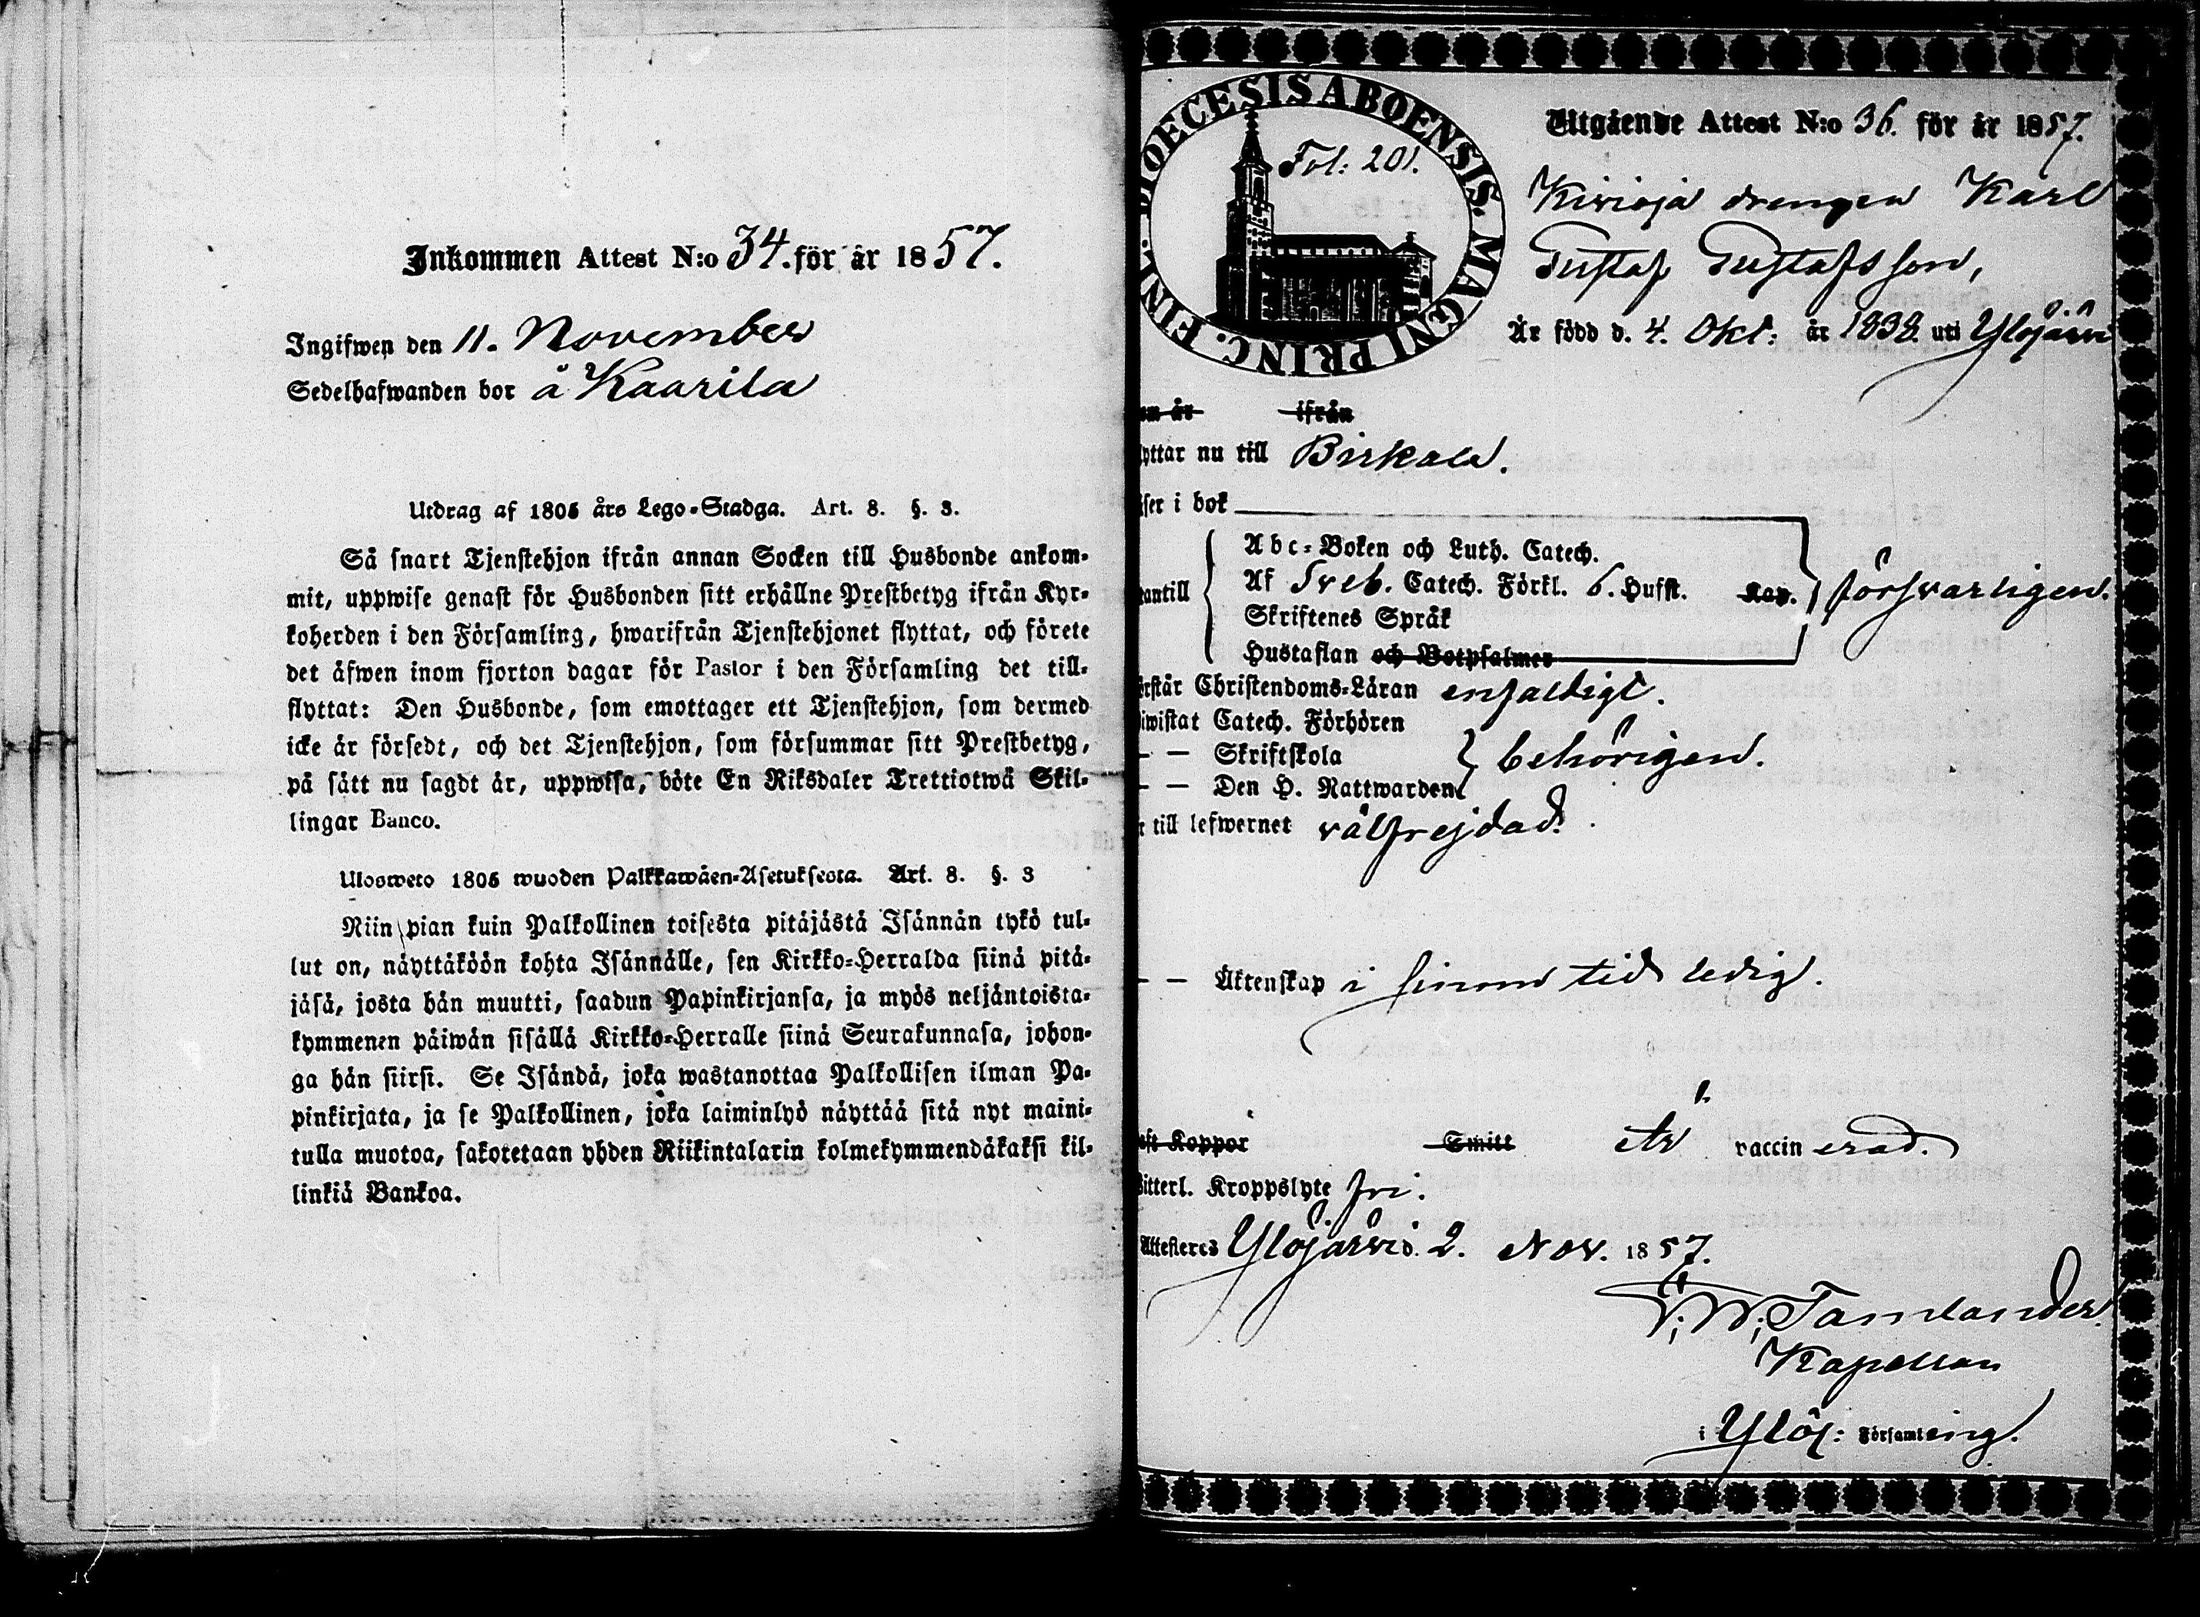 Inkommen Attest N:o 34. för år 1857.
Ingifwen den 11. November
Sedelhafwanden bor å Kaarila
Utdrag af 1805 års Lego-Stadga. Art. 8. §. 3.
Så snart Tjenstehjon ifrån annan Socken till Husbonde ankom-
mit, uppwise genast för Husbonden sitt erhållne Prestbetyg ifrån Kyr-
koherden i den Församling, hwarifrån Tjenstehjonet flyttat, och förete
det äfwen inom fjorton dagar för Pastor i den Församling det till-
flyttat: Den Husbonde, som emottager ett Tjenstehjon, som dermed
icke är försedt, och det Tjenstehjon, som försummar sitt Prestbetyg,
på sätt nu sagdt är, uppwisa, böte En Riksdaler Trettiotwå Skil-
lingar Banco.
Ulosweto 1805 wuoden Palkkawäen-Asetuksesta. Art. 8. §. 3
Niin pian kuin Palkollinen toisesta pitäjästä Isännän tykö tul-
lut on, näyttäköön kohta Isännälle, sen Kirkko-Herralda siinä pitä-
jäsä, josta hän muutti, saadun Papinkirjansa, ja myös neljäntoista-
kymmenen päiwän sisällä Kirkko-Herralle siinä Seurakunnasa, johon-
ga hän siirsi. Se Isändä, joka wastanottaa Palkollisen ilman Pa-
pinkirjata, ja se Palkollinen, joka laiminlyö näyttää sitä nyt maini-
tulla muotoa, sakotetaan yhden Riikintalarin kolmekymmendäkaksi kil-
linkiä Bankoa.
DIOECESIS ABOENSIS. MAGNI PRINC. FINL.
Fol: 201.
Utgående Attest N:o 36. för år 1857.
Kirioja drengen Karl
Gustaf Gustafsson,
Är född d. 4. Okt: år 1838. uti Ylöjärvi
om år ifrån
yttar nu till Birkala.
äser i bok
Abc-Boken och Luth. Catech.
utantill Af Sveb. Catech. Förkl. 6. Hufst. Kap. försvarligen.
Skriftenes Språk
Hustaflan och Botpsalmer
örstår Christendoms-Läran enfaldigt.
iwistat Catech. Förhören
— — Skriftskola behörigen.
— — Den H. Nattwarden
r till lefwernet välfrejdad.
— — Äktenskap i sinom tid ledig.
aft Koppor Smitt Är vaccinerad.
Witterl. Kroppslyte fri.
Attesteres Ylöjärvi d. 2. Nov. 1857.
Tamlander.
Kapellan
i Ylöj: Församling.